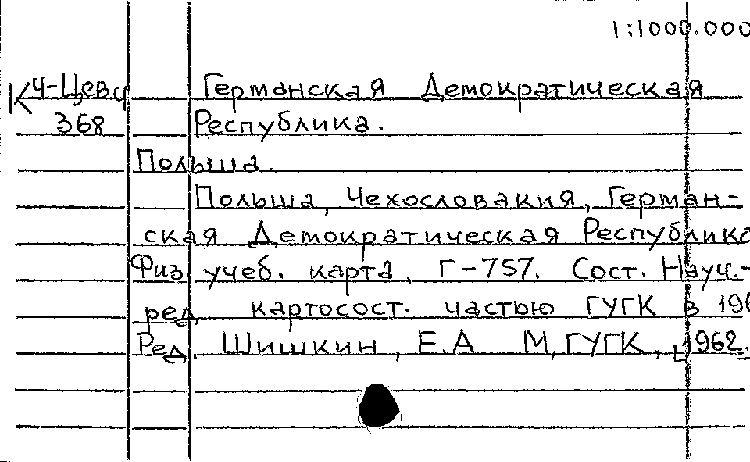 1:1000.000
К4-Цевч Германская Демократическая
368 Республика.
Польша.
Польша, Чехословакия, Герман-
ская Демократическая Республика
Физ. учеб. карта, Г-757. Сост. Науч.-
ред. картосост. частью ГУГК в 196
Ред. Шишкин, Е.А М, ГУГК, 1962.